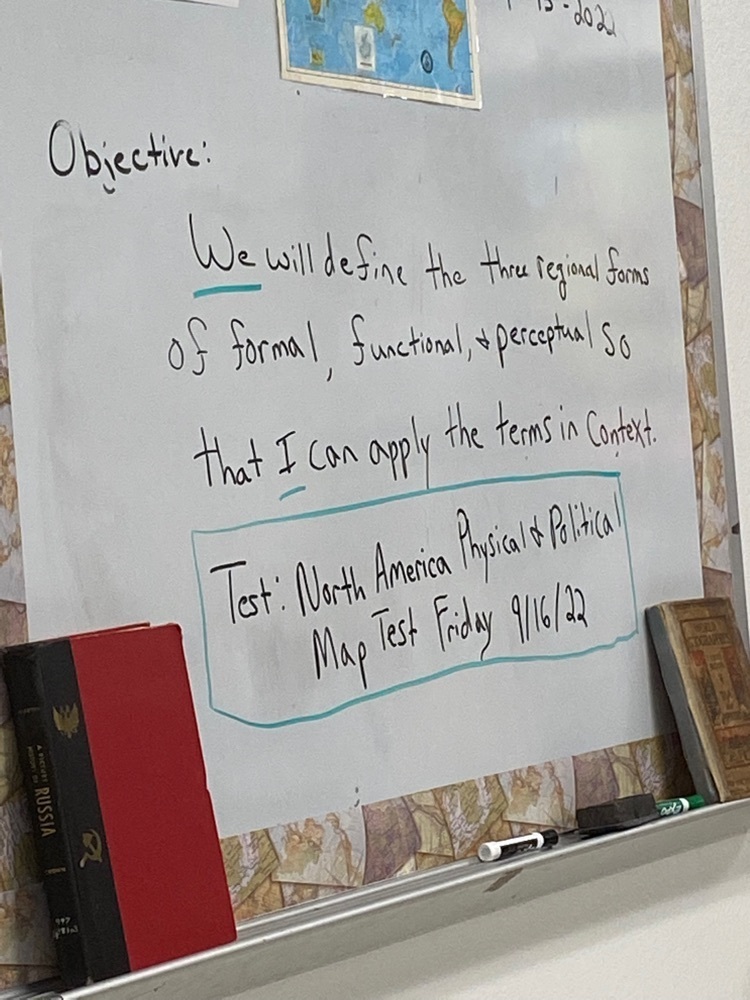 13-2022
Objective:
We will define the three regional forms
of formal, functional, & perceptual so
that I can apply the terms in context.
Test: North America Physical & Political
Map Test Friday 9/16/22
A PICTURE
HISTORY OF RUSSIA
947
WORLD
GEOGRAPHY
EXPO